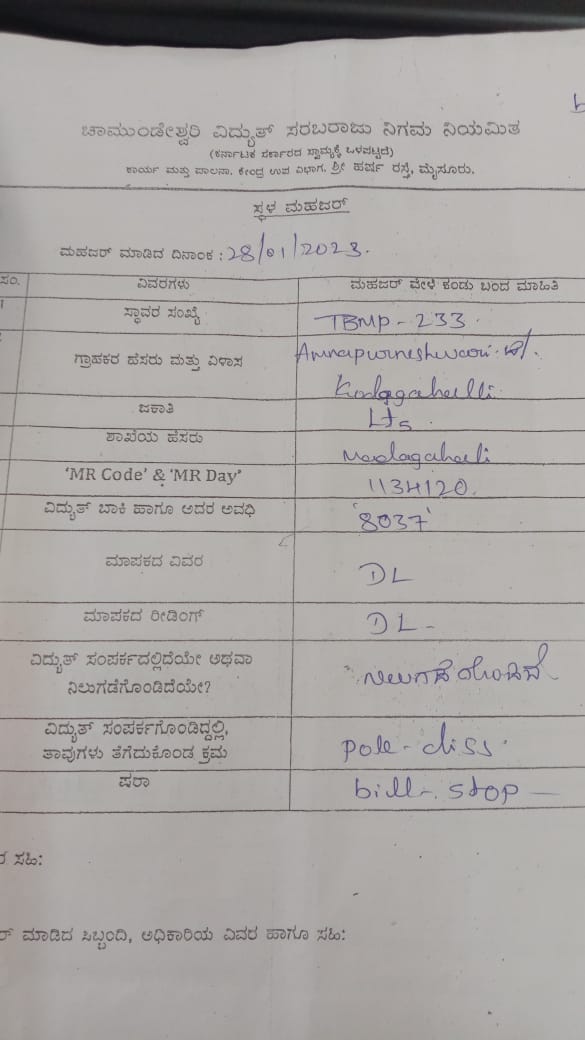 ಚಾಮುಂಡೇಶ್ವರಿ ವಿದ್ಯುತ್ ಸರಬರಾಜು ನಿಗಮ ನಿಯಮಿತ
(ಕರ್ನಾಟಕ ಸರ್ಕಾರದ ಸ್ವಾಮ್ಯಕ್ಕೆ ಒಳಪಟ್ಟಿದೆ)
ಕಾರ್ಯ ಮತ್ತು ಪಾಲನಾ, ಕೇಂದ್ರ ಉಪ ವಿಭಾಗ, ಶ್ರೀ ಹರ್ಷ ರಸ್ತೆ, ಮೈಸೂರು.
ಸ್ಥಳ ಮಹಜರ್
ಮಹಜರ್ ಮಾಡಿದ ದಿನಾಂಕ : 28/01/2023.
ಸಂ. ವಿವರಗಳು ಮಹಜರ್ ವೇಳೆ ಕಂಡು ಬಂದ ಮಾಹಿತಿ
1 ಸ್ಥಾವರ ಸಂಖ್ಯೆ TBMP - 233
ಗ್ರಾಹಕರ ಹೆಸರು ಮತ್ತು ವಿಳಾಸ
ಜಕಾತಿ
ಶಾಖೆಯ ಹೆಸರು
'MR Code' & 'MR Day' 1134120
ವಿದ್ಯುತ್ ಬಾಕಿ ಹಾಗೂ ಅದರ ಅವಧಿ '8037'
ಮಾಪಕದ ವಿವರ DL
ಮಾಪಕದ ರೀಡಿಂಗ್ DL -
ವಿದ್ಯುತ್ ಸಂಪರ್ಕದಲ್ಲಿದೆಯೇ ಅಥವಾ
ನಿಲುಗಡೆಗೊಂಡಿದೆಯೇ?
ವಿದ್ಯುತ್ ಸಂಪರ್ಕಗೊಂಡಿದ್ದಲ್ಲಿ,
ತಾವುಗಳು ತೆಗೆದುಕೊಂಡ ಕ್ರಮ pole - diss.
ಷರಾ bill - stop —
ಸಹಿ:
ಮಾಡಿದ ಸಿಬ್ಬಂದಿ, ಅಧಿಕಾರಿಯ ವಿವರ ಹಾಗೂ ಸಹಿ: